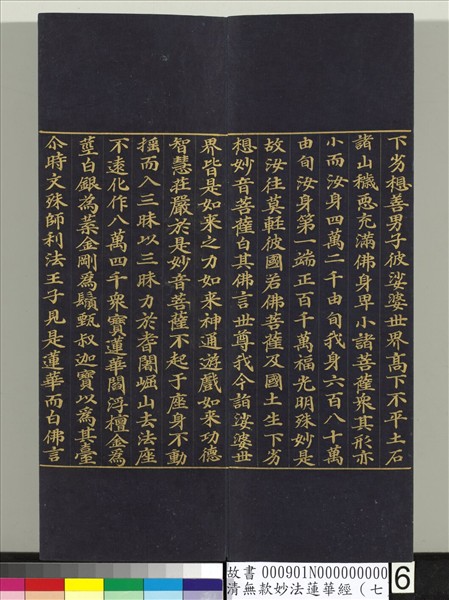 下劣想善男子彼娑婆世界高下不平土石
諸山穢惡充滿佛身卑小諸菩薩衆其形亦
小而汝身四萬二千由旬我身六百八十萬
由旬汝身第一端正百千萬福光明殊妙是
故汝往莫輕彼國若佛菩薩及國土生下劣
想妙音菩薩白其佛言世尊我今詣娑婆世
界皆是如來之力如來神通遊戲如來功德
智慧莊嚴於是妙音菩薩不起于座身不動
搖而入三昧以三昧力於耆闍崛山去法座
不遠化作八萬四千衆寶蓮華閻浮檀金為
莖白銀為葉金剛為鬚甄叔迦寶以為其臺
尒時文殊師利法王子見是蓮華而白佛言
故書 000901N000000000
清無款妙法蓮華經（七
6